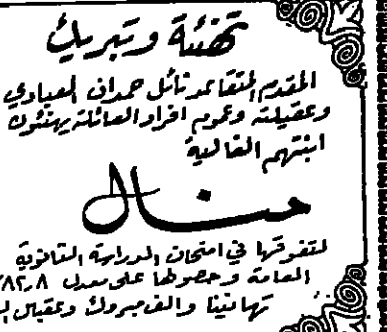 تهنئة وتبريك
المقدم المتقاعد نائل حمدان العبادي
وعقيلته وعموم افراد العائلة يهنئون
ابنتهم الغالية
منال
لتفوقها في امتحان الدراسة الثانوية
العامة وحصولها على معدل ٨٢,٨
تهانينا والف مبروك وعقبال